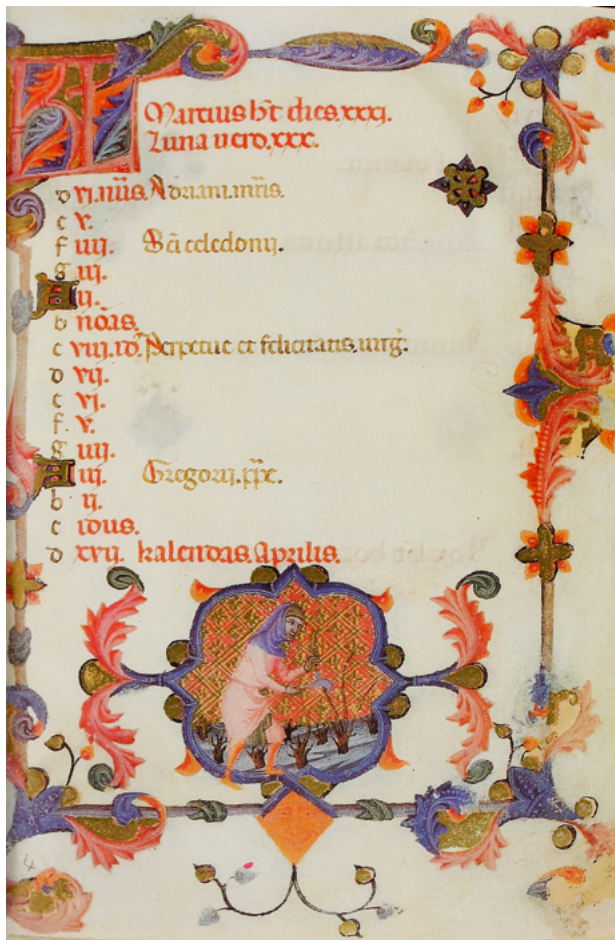 KL
Martius h̄t dies.xxxj.
Luna uero.xxx.
d vi.nōs. Adriani.m̄ris.
e v.
f iiij. S̄ci celedonij.
g iij.
A ij.
b nōas.
c viij.id̄. Perpetue et felicitatis.uirḡ.
d vij.
e vj.
f v.
g iiij.
A iij. Gregorij.pp̄e.
b ij.
c idus.
d xvij. kalendas.Aprilis.